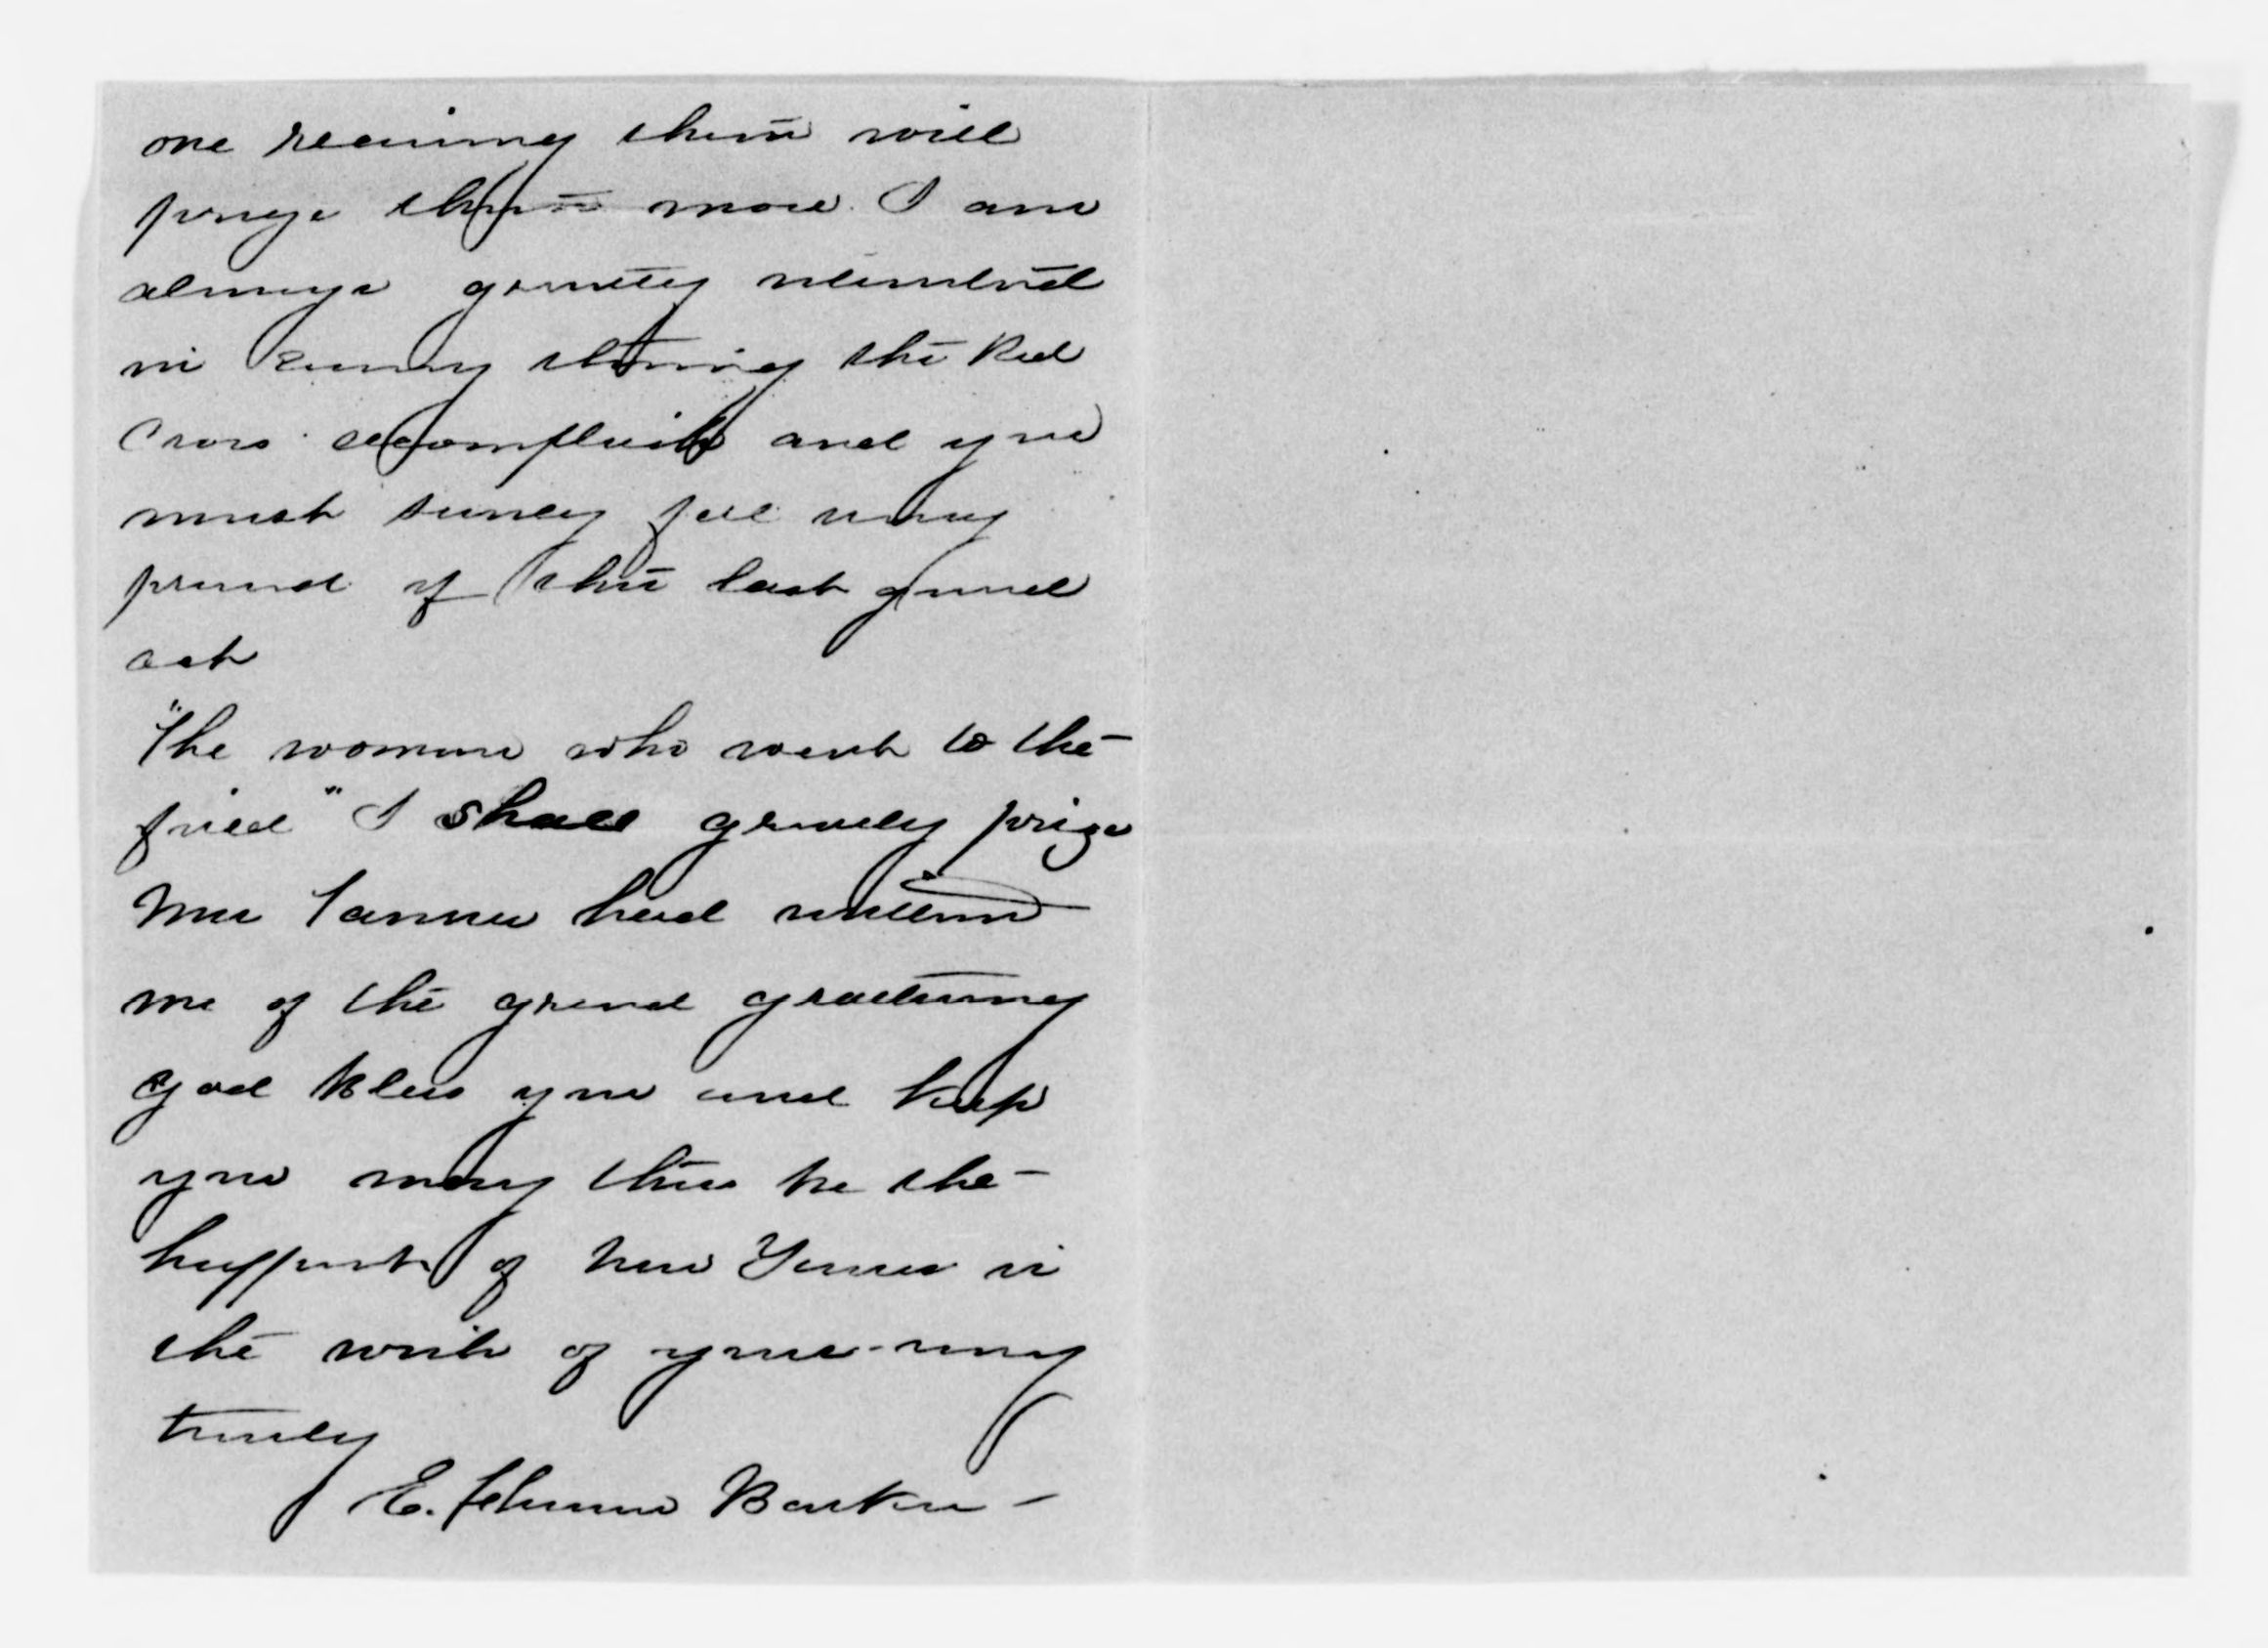 one receiving them will
prize them more. I am
always greatly interested
in every thing the Red
Cross accomplish and you
must surely feel very
proud of this last grand
act
"The women who went to the
field" I shall greatly prize
Mrs Tanner had written
me of the grand gathering
God bless you and keep
you may this be the
happiest of New Years is
the wish of yours very
truly
E. Barker -